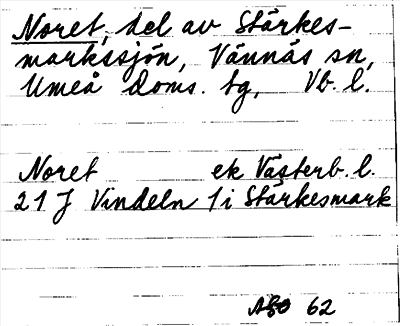 Noret, del av Stärkes-
markssjön, Vännäs sn,
Umeå Doms. tg, Vb. l.
Noret ek Västerb. l.
21 J Vindeln 1 i Stärkesmark
62